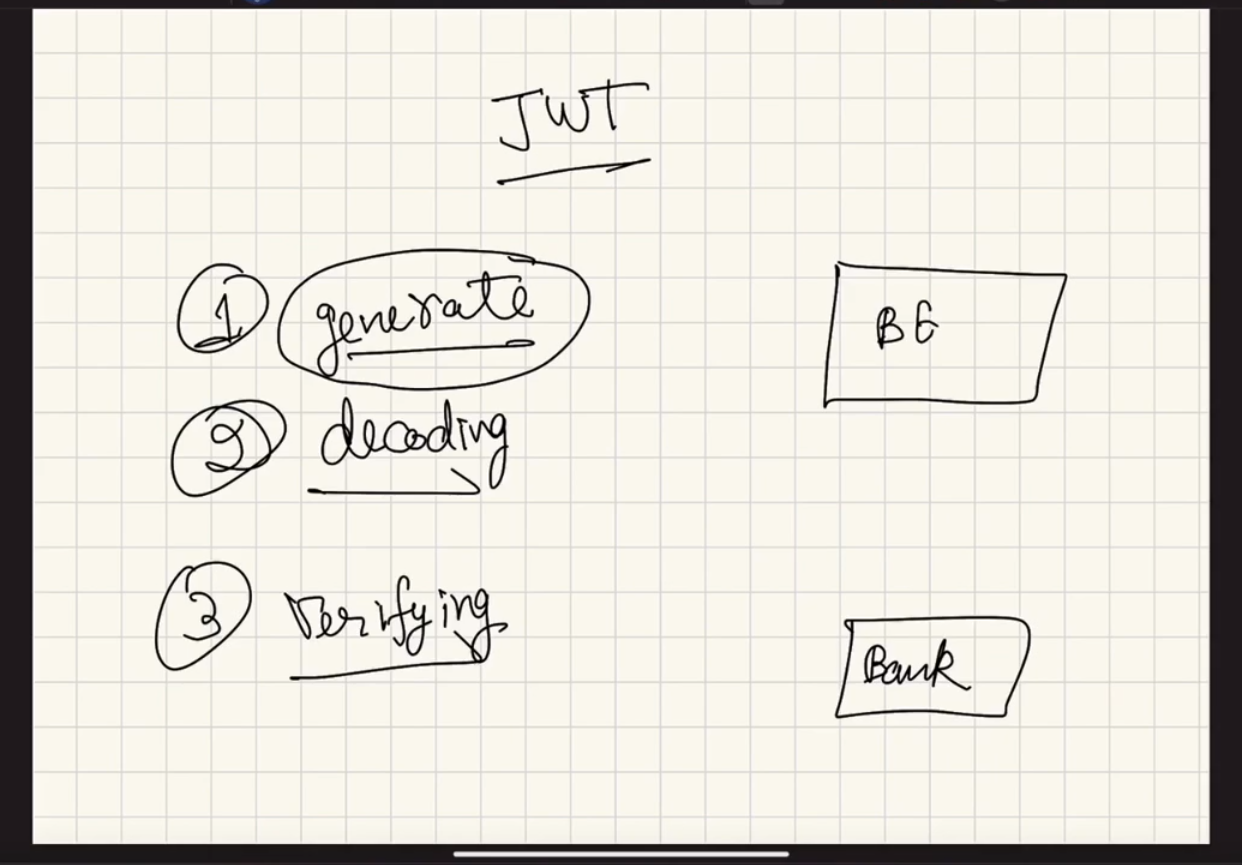 JWT
1 generate
2 decoding
3 Verifying
BE
Bank